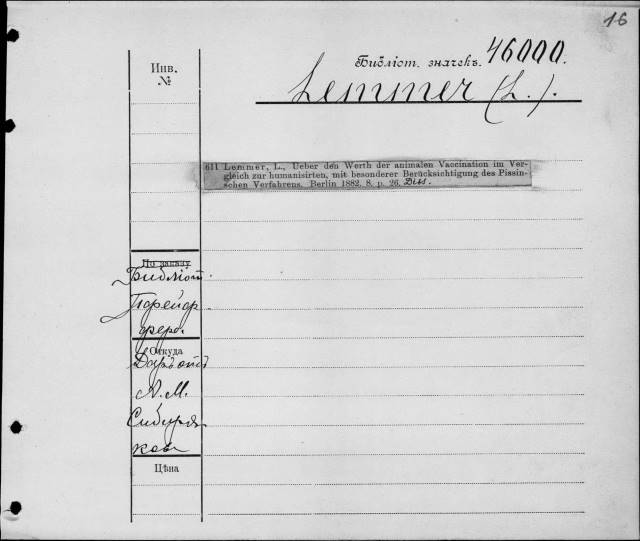 16
Библіот. значекъ. 46000.
Инв.
№
Lemmer (L.).
611 Lemmer, L., Ueber den Werth der animalen Vaccination im Ver-
gleich zur humanisirten, mit besonderer Berücksichtigung des Pissin-
schen Verfahrens. Berlin 1882. 8. p. 26. Diss.
По заказу
Библіот.
Пфейф
фера.
Откуда
Даръ отъ
А. М.
Сибиря
кова
Цѣна